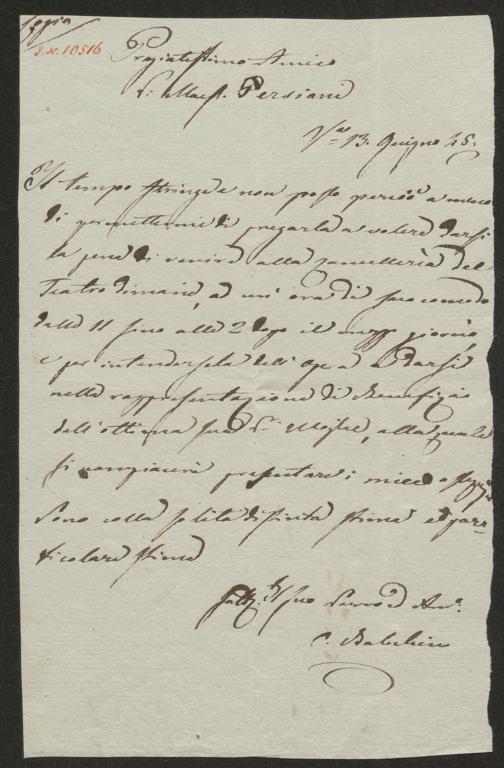 Copia
S.N. 10516
Pregiatissimo Amico
Sr. Maest. Persiani
13. Giugno 45.
Il tempo stringe e non posso perciò a meno
di permettermi di pregarla a volere darsi
la pena di venire alla Cancelleria del
Teatro dimani, ad un' ora di suo comodo
dalle 11 sino alle 2 dopo il mezzo giorno,
e per intendersela dell' Opera a darsi
nella rappresentazione di Benefizio
dell' ottima sua Sra. Moglie, alla quale
si compiacerà presentare i miei ossequi
Sono colla solita distinta stima e par-
ticolare stima
suo Servo ed Am.
C. Balochino